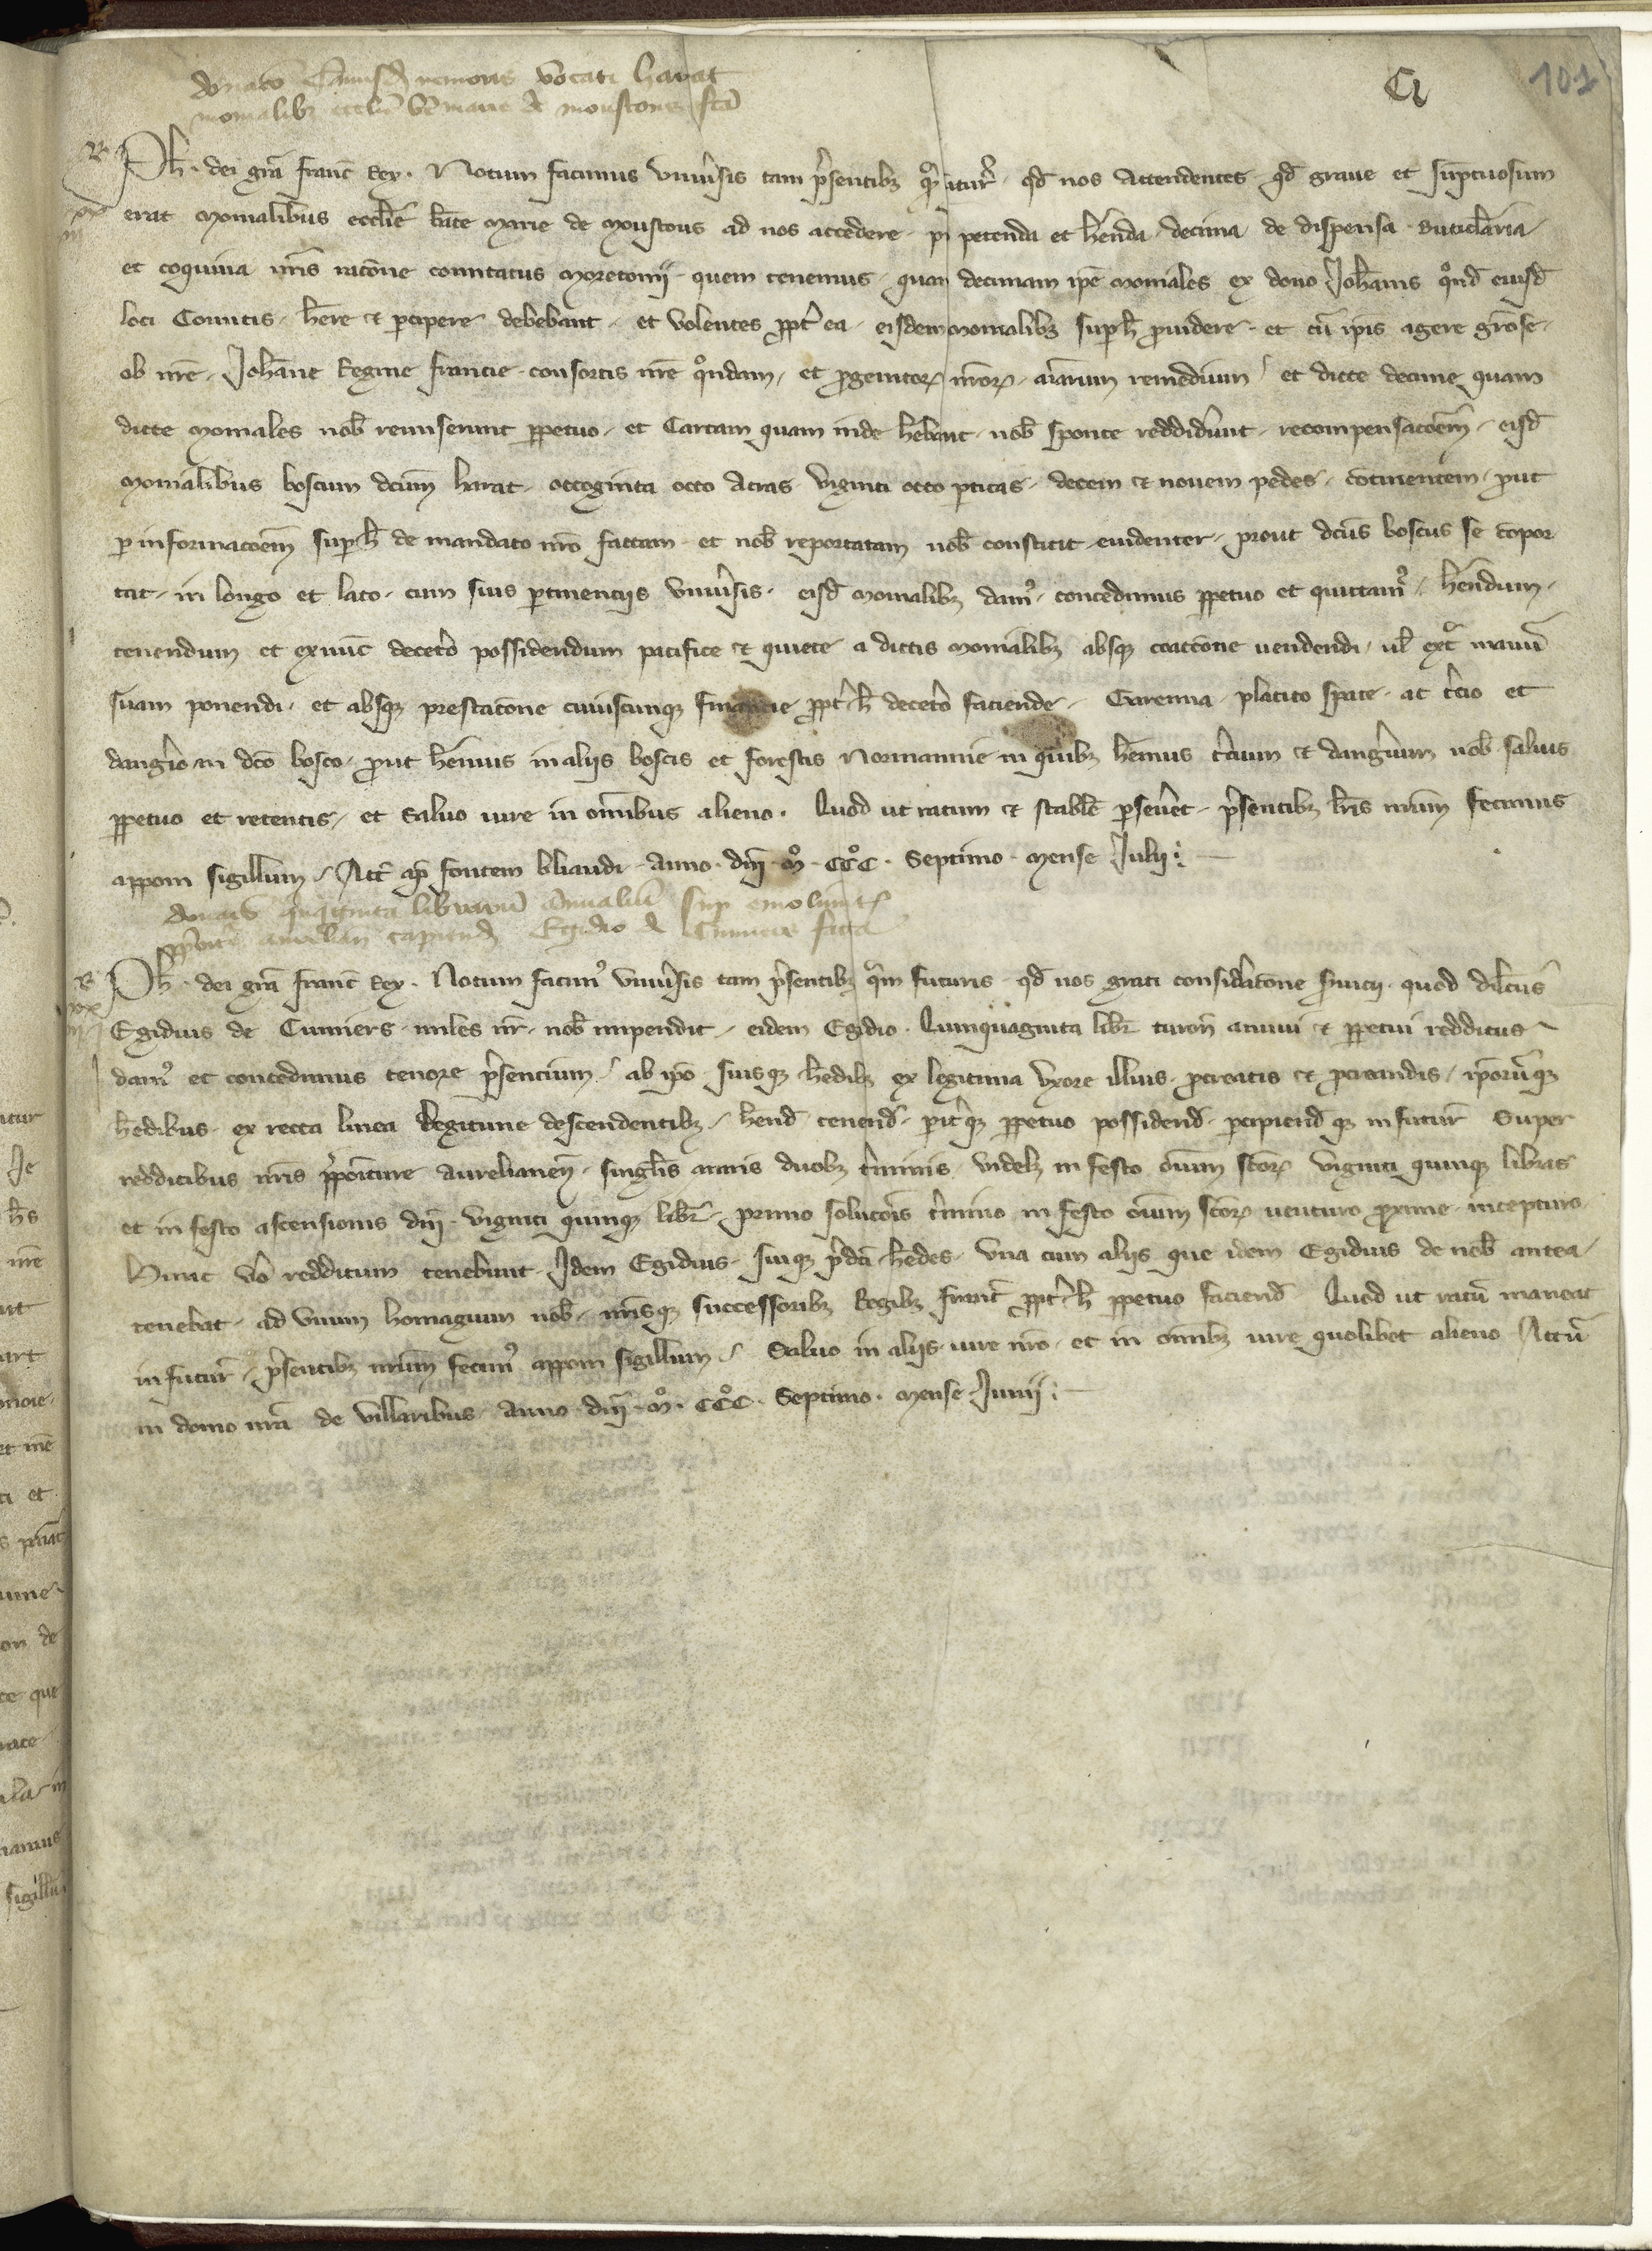 donatio cuiusd nemoris vocati harat
monialibz ecclie bte marie de moustons fca
CI
101
Ph. dei gra franc Rex. Notum facimus vniusis tam psentibz qm futur. qd nos attendentes qd graue et suptuosum
erat monialibus ecclie beate marie de moustons ad nos accedere. p petenda et henda decima de dispensa buticlaria
et coquina nris racone comitatus moretonii quem tenemus. quam decimam ipe moniales ex dono Johannis qond eiusd
loci Comitis. here et pcipere debebant. et volentes ppt ea. eisdem monialibz sup h prouidere. et cu ipis agere grose.
ob nre. Johanne Regine francie consortis nre qondam, et progenitor nror. aiarum remedium et dicte decime quam
dicte moniales nob remiserunt ppetuo. et Cartam quam inde hebant. nob sponte reddidunt. recompensacoem. eisd
monialibus boscum dcum harat. octoginta octo acras. viginti octo pticas. decem et nouem pedes. cotinentem. prout
p informacoem sup h de mandato nro factam et nob reportatam nob constitit euidenter. prout dcus boscus se copor
tat. in longo et lato. cum suis ptinenciis vniusis. eisd monialibz dam. concedimus ppetuo et quittam. hendum.
tenendum et exnuc deceto possidendum pacifice et quiete a dictis monialibz absqz coactione uendendi. ul ext manu
suam ponendi. et absqz prestacone cuiuscunqz financie ppt h deceto faciende. Garenna. placito spate. ac tcio et
dangio in dco bosco. prout hemus in aliis boscis et forestis Normannie in quibz hemus tcium et dangium nob saluis
ppetuo et retentis. et saluo iure in omnibus alieno. Quod ut ratum et stabile pseuet. psentibz lris nrum fecimus
apponi sigillum. Act ap fontem bliaudi. anno dni mo. CCCo. Septimo. mense Julii.
donatio quiquginta librarum annualiu sup emolumt
ppoiture aurelian capiend Egidio de Cumiers facta
Ph. dei gra franc Rex. Notum facim vniusis tam psentibz qm futuris. qd nos grati considacone suicii quod dilcus
Egidius de Cumiers miles nr. nob impendit. eidem Egidio. Quinquaginta libr turon annui et ppetui redditus
dam et concedimus tenore psencium. ab ipo suisqz hedibz ex legitima vxore illius. procreatis et pcreandis. iporuqz
hedibus ex recta linea legitime descendentibz. hend tenend. pitqz ppetuo possidend pcipiendqz in futur Super
redditibus nris ppoiture aurelianen. singlis annis duobz tminis. videlz in festo oium scor viginti quinqz libras
et in festo ascensionis dni. viginti quinqz libr. primo solucois tmino in festo oium scor venturo proxime incepturo.
Hunc vo redditum tenebunt. Idem Egidius. suiqz pdci hedes. vna cum aliis que idem Egidius de nob antea
tenebat. ad vnum homagium nob. nrisqz successoribz Regibz franc ppt h ppetuo faciend. Quod ut ratu maneat
in futur. psentibz nrum fecim apponi sigillum. Saluo in aliis iure nro. et in omibz iure quolibet alieno. Actu
in domo nra de villaribus. anno dni mo. CCCo. Septimo. mense Junii.